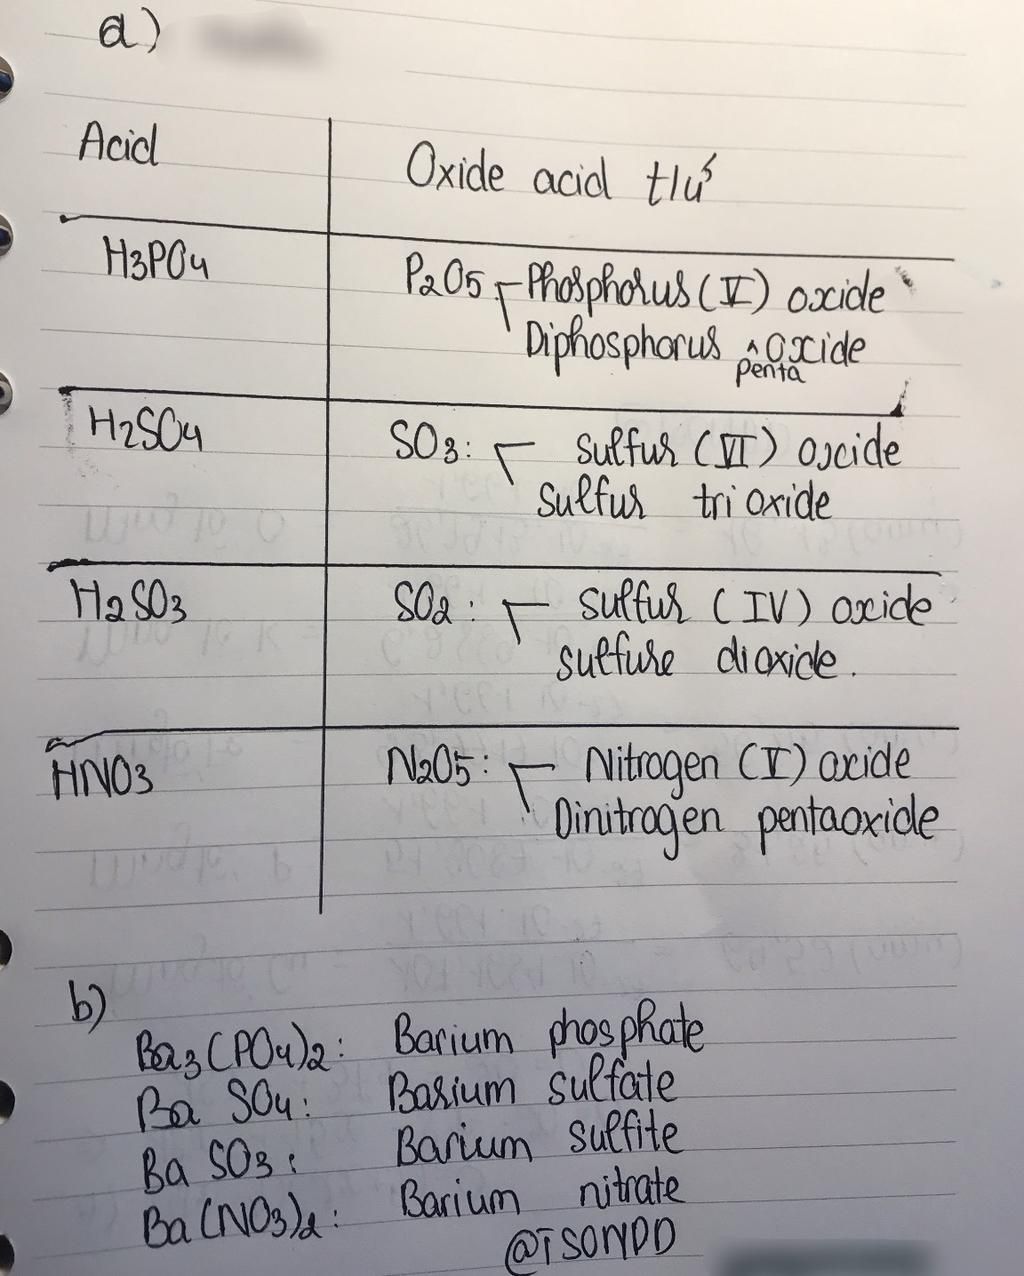 a)
Acid
Oxide acid t/ứ
H3PO4
P2O5 Phosphorus (V) oxide
Diphosphorus penta oxide
H2SO4
SO3: sulfur (VI) oxide
sulfur tri oxide
H2SO3
SO2: sulfur (IV) oxide
sulfure dioxide.
HNO3
N2O5: Nitrogen (V) oxide
Dinitrogen pentaoxide
b)
Ba3(PO4)2: Barium phosphate
Ba SO4: Barium sulfate
Ba SO3: Barium sulfite
Ba(NO3)2: Barium nitrate